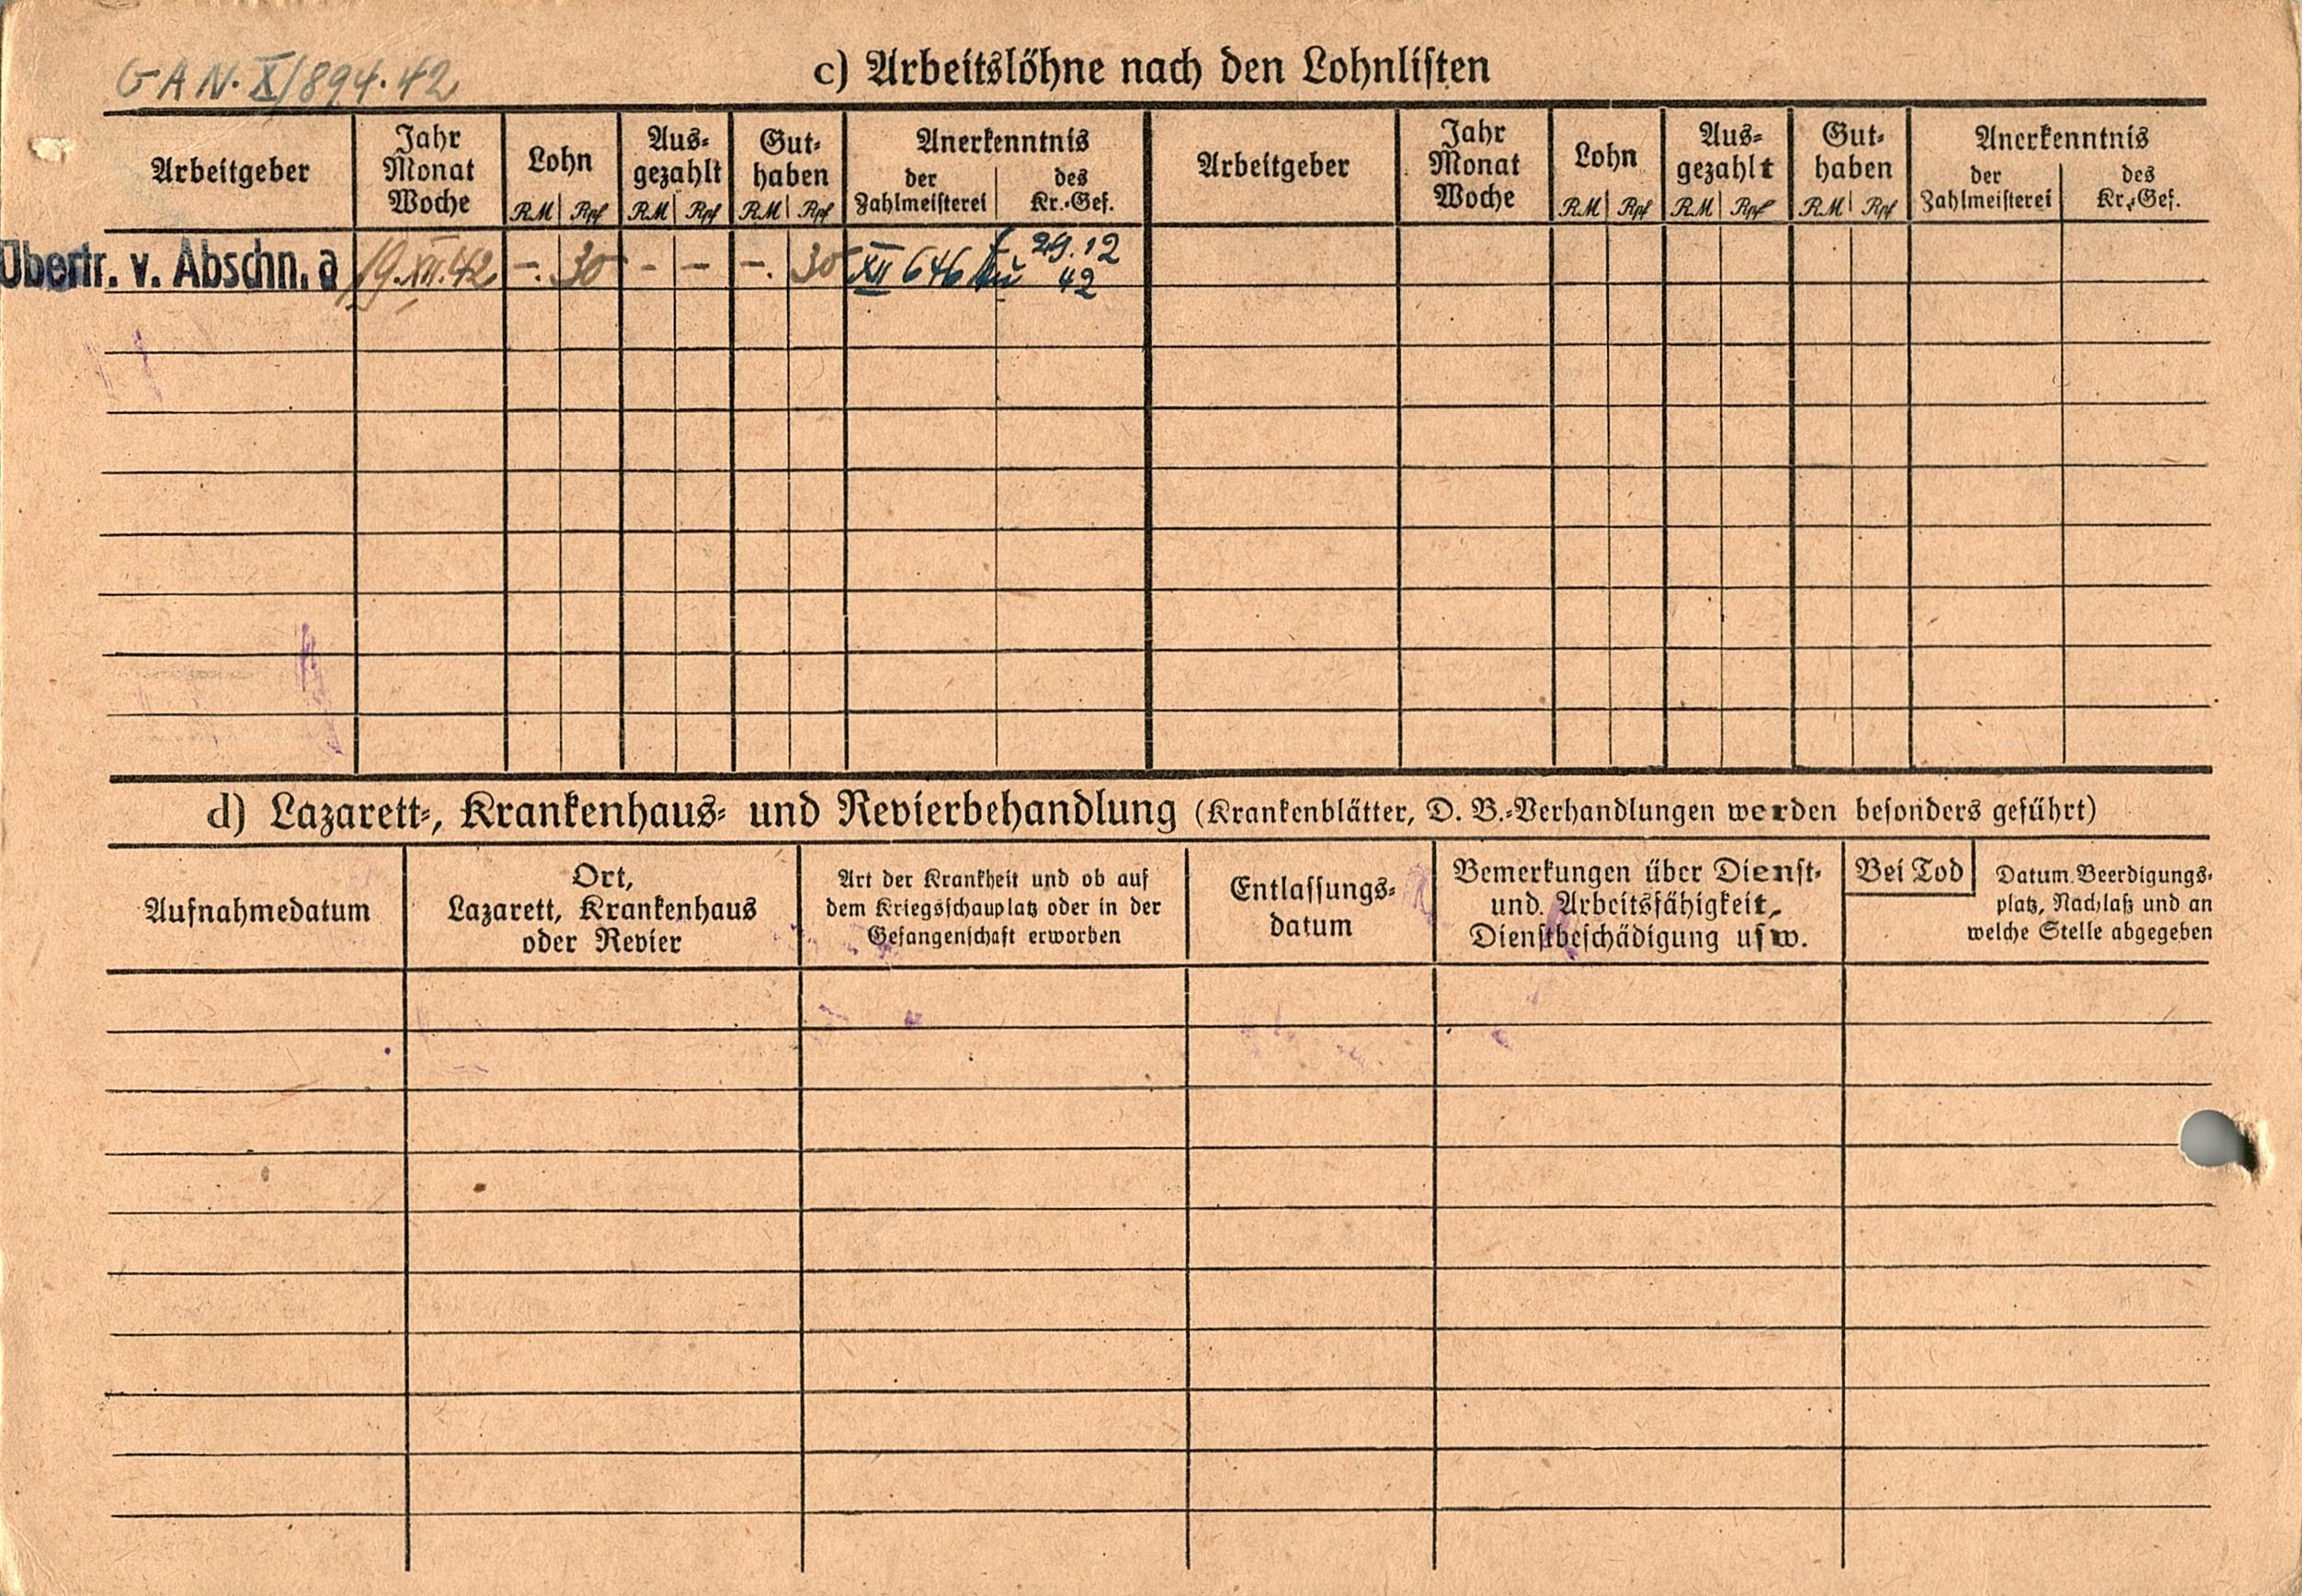 GAN. X/894.42
c) Arbeitslöhne nach den Lohnlisten
Arbeitgeber
Jahr
Monat
Woche
Lohn
RM Rpf
Aus-
gezahlt
RM Rpf
Gut-
haben
RM Rpf
Anerkenntnis
der
Zahlmeisterei
des
Kr.-Gef.
Arbeitgeber
Jahr
Monat
Woche
Lohn
RM Rpf
Aus-
gezahlt
RM Rpf
Gut-
haben
RM Rpf
Anerkenntnis
der
Zahlmeisterei
des
Kr.-Gef.
Übertr. v. Abschn. a 19.XII.42 -. 30 - - -. 30 XII 646 29.12
42
d) Lazarett-, Krankenhaus- und Revierbehandlung (Krankenblätter, D. B.-Verhandlungen werden besonders geführt)
Aufnahmedatum
Ort,
Lazarett, Krankenhaus
oder Revier
Art der Krankheit und ob auf
dem Kriegsschauplatz oder in der
Gefangenschaft erworben
Entlassungs-
datum
Bemerkungen über Dienst-
und Arbeitsfähigkeit,
Dienstbeschädigung usw.
Bei Tod
Datum Beerdigungs-
platz, Nachlaß und an
welche Stelle abgegeben